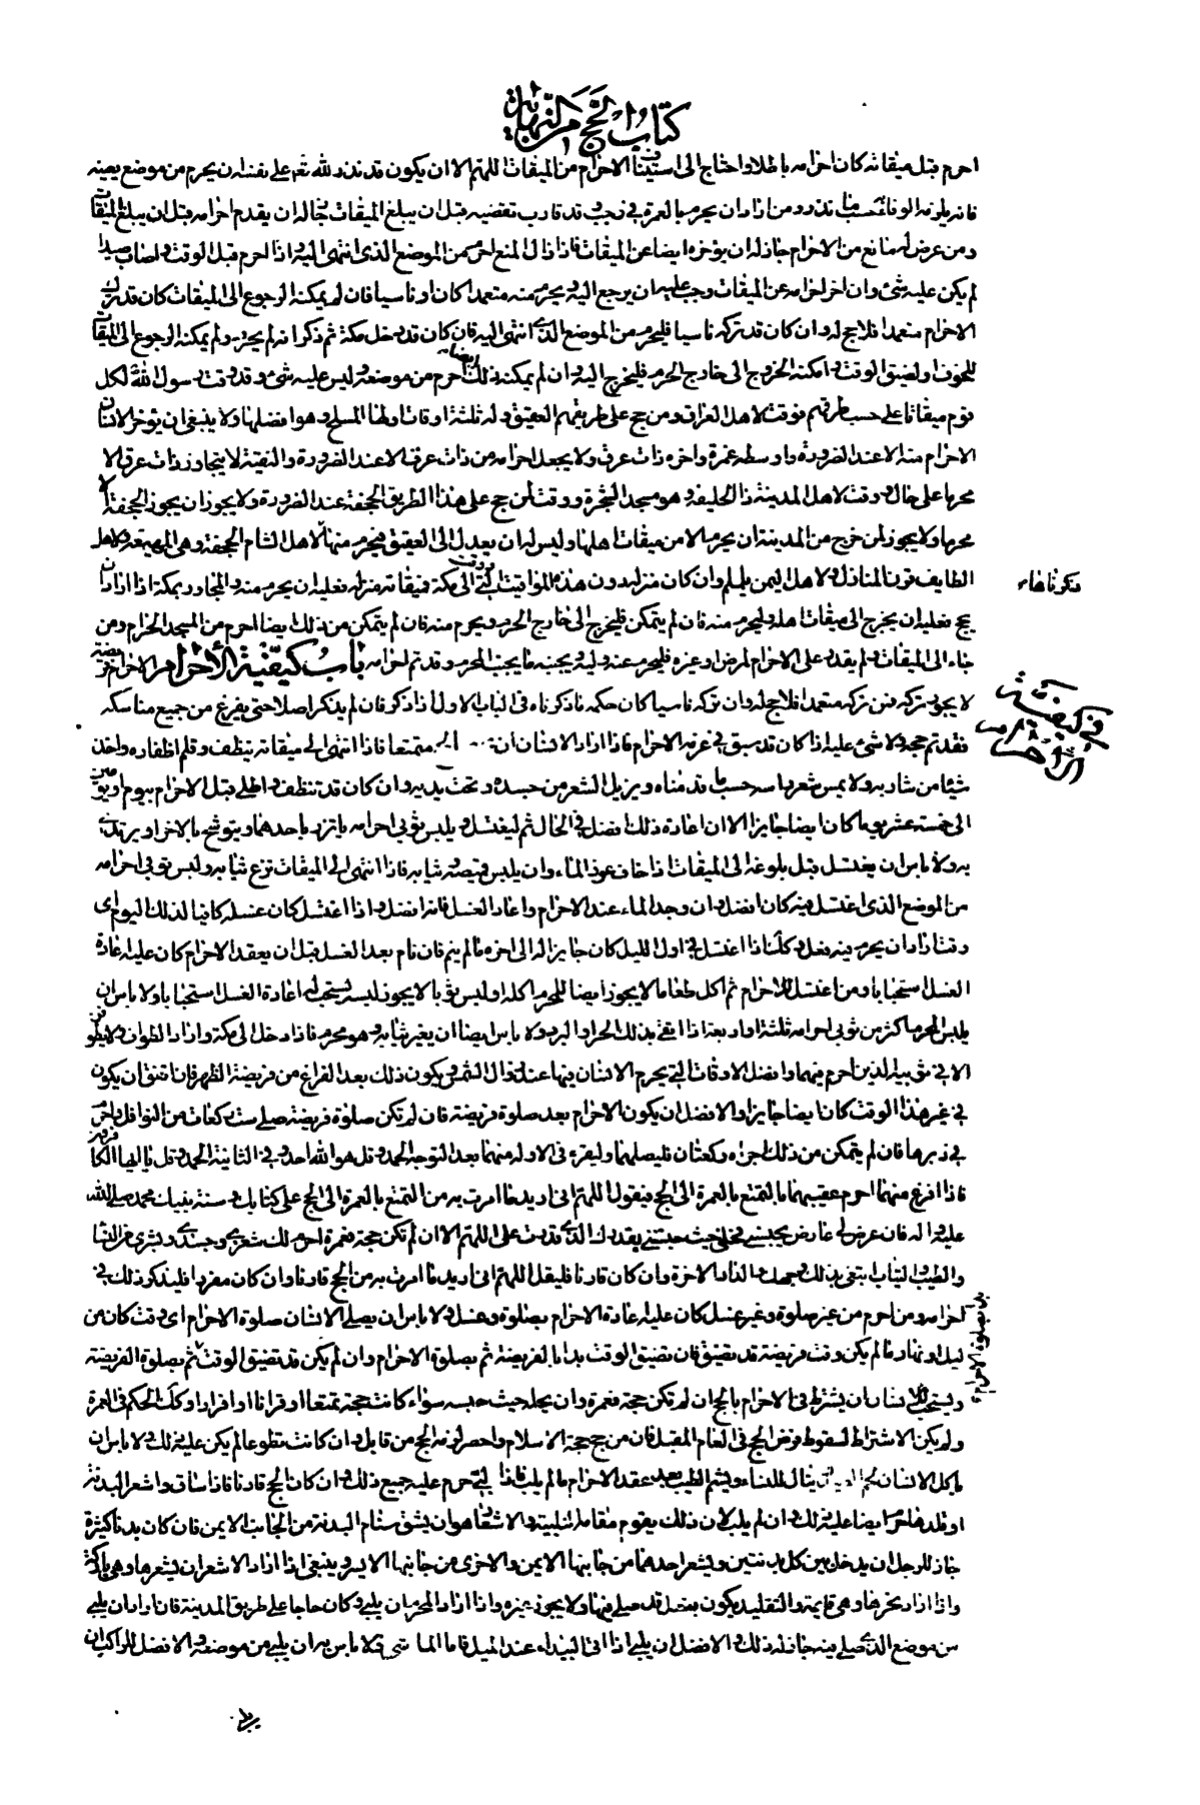 كتاب الحج من النهاية
احرم قبل ميقاته كان احرامه باطلا واحتاج الى استيناف الاحرام من الميقات اللهم الا ان يكون قد نذر لله تع على نفسه ان يحرم من موضع بعينه
فانه يلزمه الوفا به حسب ما نذر ومن اراد ان يحرم بالعمرة في رجب وقد قارب تقضيه قبل ان يبلغ الميقات جاز له ان يقدم احرامه قبل ان يبلغ الميقات
ومن عرض له مانع من الاحرام جاز له ان يؤخره ايضا عن الميقات فاذا زال المنع احرم من الموضع الذى انتهى اليه واذا احرم قبل الوقت واصاب صيدا
لم يكن عليه شئ وان اخر احرامه عن الميقات وجب عليه ان يرجع اليه ويحرم منه متعمدا كان او ناسيا فان لم يمكنه الرجوع الى الميقات كان قد ترك
الاحرام متعمدا فلا حج له وان كان قد تركه ناسيا فليحرم من الموضع الذى انتهى اليه فان كان قد دخل مكة ثم ذكر انه لم يحرم ولم يمكنه الرجوع الى الميقات
للخوف او لضيق الوقت وامكنه الخروج الى خارج الحرم فليخرج اليه وان لم يمكنه ذلك ايضا احرم من موضعه وليس عليه شئ وقد وقت رسول الله لكل
قوم ميقاتا على حسب طرقهم فوقت لاهل العراق ومن حج على طريقهم العقيق وله ثلثة اوقات اولها المسلح وهو افضلها ولا ينبغى ان يؤخر الانسان
الاحرام منه الا عند الضرورة واوسطه غمرة واخره ذات عرق ولا يجعل احرامه من ذات عرق الا عند الضرورة والتقية لا يتجاوز ذات عرق الا
محرما على حال ووقت لاهل المدينة ذا الحليفة وهو مسجد الشجرة ووقت لمن حج على هذا الطريق الجحفة عند الضرورة ولا يجوز ان يجوز الجحفة الا
محرما ولا يجوز لمن خرج من المدينة ان يحرم الا من ميقات اهلها وليس له ان يعدل الى العقيق فيحرم منها ولاهل الشام الجحفة وهى المهيعة ولاهل
الطايف قرن المنازل ولاهل اليمن يلملم وان كان منزله دون هذه المواقيت الى مكة فميقاته منزله فعليه ان يحرم منه والمجاور بمكة اذا اراد ان
يحج فعليه ان يخرج الى ميقات اهله وليحرم منه فان لم يتمكن فليخرج الى خارج الحرم ويحرم منه فان لم يتمكن من ذلك ايضا احرم من المسجد الحرام ومن
جاء الى الميقات ولم يقدر على الاحرام لمرض او غيره فليحرم عنه وليه ويجنبه ما يجتنب المحرم وقد تم احرامه باب كيفية الاحرام الاحرام فريضة
لا يجوز تركه فمن تركه متعمدا فلا حج له وان تركه ناسيا كان حكمه ما ذكرناه فى الباب الاول اذا ذكر فان لم يذكر اصلا حتى يفرغ من جميع مناسكه
فقد تم حجه ولا شئ عليه اذا كان قد سبق في عزمه الاحرام فاذا اراد الانسان ان متمتعا فاذا انتهى الى ميقاته تنظف وقلم اظفاره واخذ
شيئا من شاربه ولا يمس شعر راسه حسب ما قدمناه ويزيل الشعر من جسده وتحت يديه وان كان قد تنظف واطلى قبل الاحرام بيوم او يومين
الى خمسة عشر يوما كان ايضا جايزا الا ان اعادة ذلك افضل في الحال ثم ليغتسل ويلبس ثوبي احرامه ياتزر باحدهما ويتوشح بالاخر او يرتدى
به ولا باس ان يغتسل قبل بلوغه الى الميقات اذا خاف عوز الماء وان يلبس قميصه وثيابه فاذا انتهى الى الميقات نزع ثيابه ولبس ثوبي احرامه
من الموضع الذى اغتسل فيه كان افضل وان وجد الماء عند الاحرام واعاد الغسل فانه افضل واذا اغتسل كان غسله كافيا لذلك اليوم اى
وقت اراد ان يحرم فيه فعل وكذلك اذا اغتسل في اول الليل كان جايزا له الى اخره ما لم ينم فان نام بعد الغسل قبل ان يعقد الاحرام كان عليه اعادة
الغسل استحبابا ومن اغتسل للاحرام ثم اكل طعاما لا يجوز ايضا للمحرم اكله او لبس ثوبا لا يجوز لبسه يستحب له اعادة الغسل استحبابا ولا باس ان
يلبس المحرم اكثر من ثوبي احرامه ثلثة او اربعة اذا اتقى بذلك الحر او البرد ولا باس ايضا ان يغير ثيابه وهو محرم فاذا دخل الى مكة واراد الطواف فلا يطوفن
الا في ثوبيه الذين احرم فيهما وافضل الاوقات التى يحرم الانسان فيها عند زوال الشمس ويكون ذلك بعد الفراغ من فريضة الظهر فان اتفق ان يكون
في غير هذا الوقت كان ايضا جايزا والافضل ان يكون الاحرام بعد صلوة فريضة فان لم تكن صلوة فريضة صلى ست ركعات من النوافل واحرم
في دبرها فان لم يتمكن من ذلك اجزاه ركعتان فليصلهما وليقرء فى الاولة منهما بعد التوجه الحمد وقل هو الله احد وفي الثانية الحمد وقل يا ايها الكافرون
فاذا فرغ منهما احرم عقيبهما بالتمتع بالعمرة الى الحج فيقول اللهم انى اريد ما امرت به من التمتع بالعمرة الى الحج على كتابك وسنة نبيك محمد صلى الله
عليه واله فان عرض لى عارض يحبسنى فحلنى حيث حبستنى بقدرك الذى قدرت على اللهم الا ان لم تكن حجة فعمرة احرم لك شعرى وجسدى وبشرى من النساء
والطيب والثياب ابتغى بذلك وجهك والدار الاخرة وان كان قارنا فليقل اللهم انى اريد ما امرت به من الحج قارنا وان كان مفردا فليذكر ذلك في
احرامه ومن احرم من غير صلوة وغير غسل كان عليه اعادة الاحرام بصلوة وغسل ولا باس ان يصلى الانسان صلوة الاحرام اى وقت كان من
ليل او نهار ما لم يكن وقت فريضة قد تضيق فان تضيق الوقت بدا بالفريضة ثم بصلوة الاحرام وان لم يكن قد تضيق الوقت ثم بصلوة الفريضة
ويستحب للانسان ان يشترط فى الاحرام بالحج ان لم تكن حجة فعمرة وان يحله حيث حبسه سواء كانت حجته تمتعا او قرانا او افرادا وكذلك الحكم فى العمرة
ولم يكن الاشتراط لسقوط فرض الحج فى العام المقبل فان من حج حجة الاسلام واحصر لزمه الحج من قابل وان كانت تطوعا لم يكن عليه ذلك ولا باس ان
ياكل الانسان لحم الصيد وينال النساء ويشم الطيب بعد عقد الاحرام ما لم يلب فاذا لبى حرم عليه جميع ذلك وان كان الحج قارنا فاذا ساق واشعر البدنة
او قلدها حرم ايضا عليه ذلك وان لم يلب لان ذلك يقوم مقام التلبية والاشعار هو ان يشق سنام البدنة من الجانب الايمن فان كان بدنا كثيرة
جاز للرجل ان يدخل بين كل بدنتين ويشعر احدهما من جانبها الايمن والاخرى من جانبها الايسر وينبغى اذا اراد الاشعار ان يشعرها وهى باركة
واذا اراد نحرها وهى قايمة والتقليد يكون بنعل قد صلى فيها ولا يجوز غيره واذا اراد المحرم ان يلبى وكان حاجا على طريق المدينة فان اراد ان يلبى
من موضع الذى صلى فيه جاز له ذلك والافضل ان يلبى اذا اتى البيداء عند الميل فاما الماشى فلا باس به ان يلبى من موضعه والافضل للراكب ان
في كيفية
الاحرام
بدا بصلوة الاحرام
يلبى